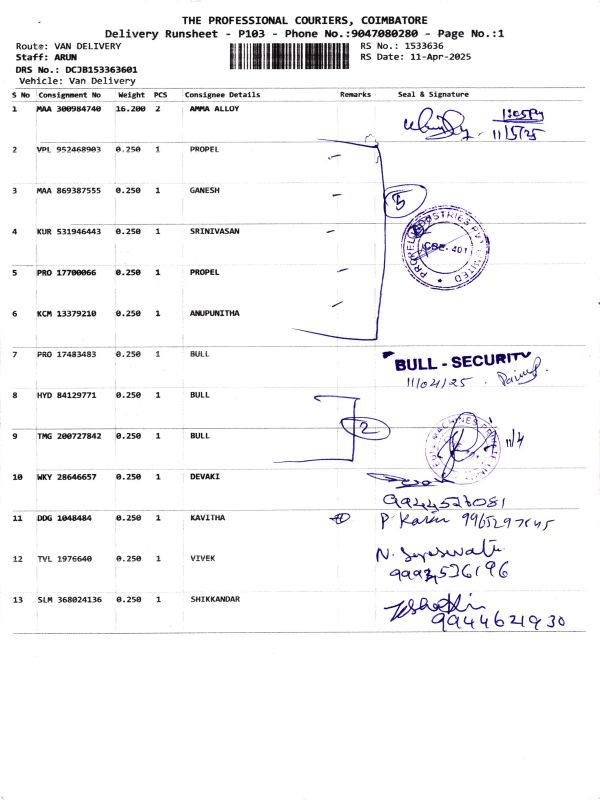 THE PROFESSIONAL COURIERS, COIMBATORE
Delivery Runsheet - P103 - Phone No.:9047080280 - Page No.:1
Route: VAN DELIVERY RS No.: 1533636
Staff: ARUN RS Date: 11-Apr-2025
DRS No.: DCJB153363601
Vehicle: Van Delivery
S No Consignment No Weight PCS Consignee Details Remarks Seal & Signature
1 MAA 300984740 16.200 2 AMMA ALLOY
11/5/25
2 VPL 952468903 0.250 1 PROPEL
3 MAA 869387555 0.250 1 GANESH
5
4 KUR 531946443 0.250 1 SRINIVASAN
PROPEL INDUSTRIES PVT LIMITED
CBE- 401
5 PRO 17700066 0.250 1 PROPEL
6 KCM 13379210 0.250 1 ANUPUNITHA
7 PRO 17483483 0.250 1 BULL
BULL - SECURITY
11/04/25
8 HYD 84129771 0.250 1 BULL
2
11/4
9 TMG 200727842 0.250 1 BULL
10 WKY 28646657 0.250 1 DEVAKI
9944523081
11 DDG 1048484 0.250 1 KAVITHA
12 TVL 1976640 0.250 1 VIVEK
13 SLM 368024136 0.250 1 SHIKKANDAR
9944621930